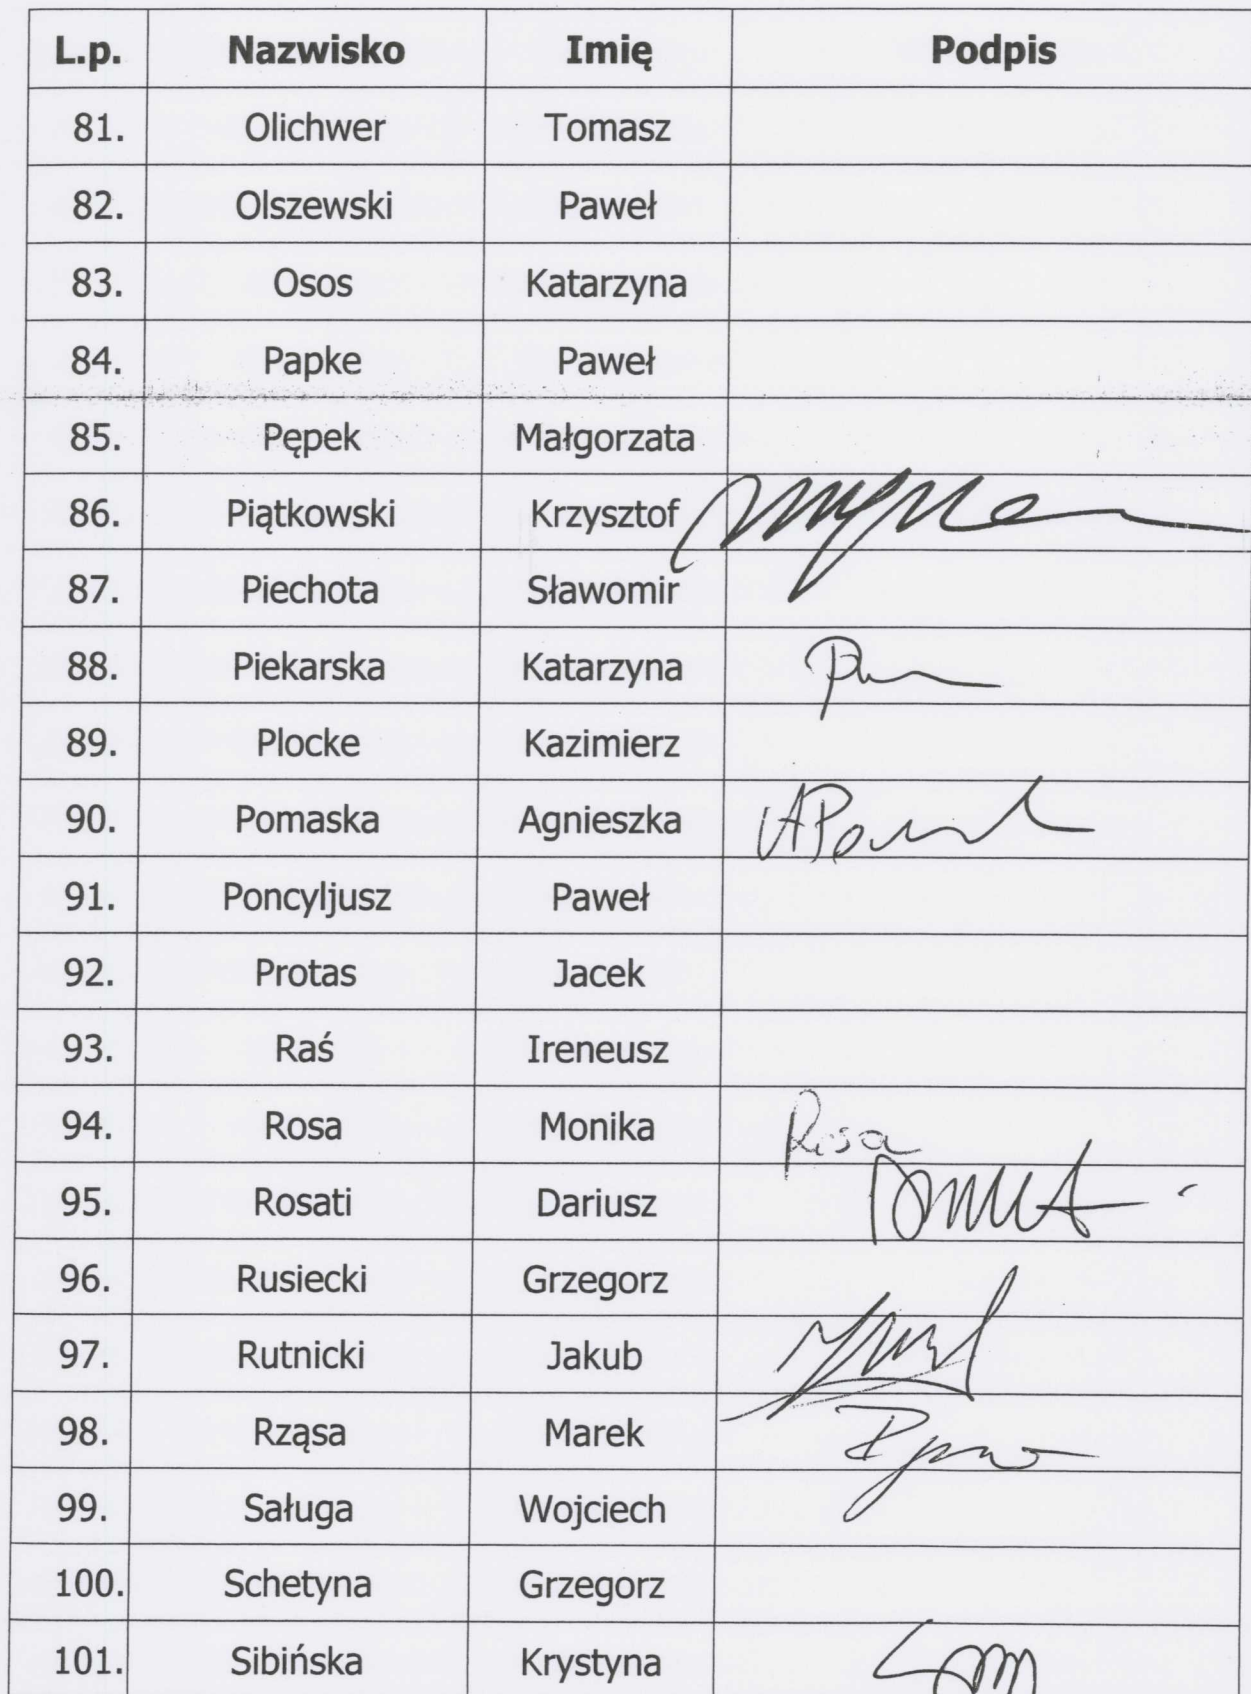 L.p. Nazwisko Imię Podpis
81. Olichwer Tomasz
82. Olszewski Paweł
83. Osos Katarzyna
84. Papke Paweł
85. Pępek Małgorzata
86. Piątkowski Krzysztof
87. Piechota Sławomir
88. Piekarska Katarzyna
89. Plocke Kazimierz
90. Pomaska Agnieszka
91. Poncyljusz Paweł
92. Protas Jacek
93. Raś Ireneusz
94. Rosa Monika Rosa
95. Rosati Dariusz
96. Rusiecki Grzegorz
97. Rutnicki Jakub
98. Rząsa Marek
99. Saługa Wojciech
100. Schetyna Grzegorz
101. Sibińska Krystyna